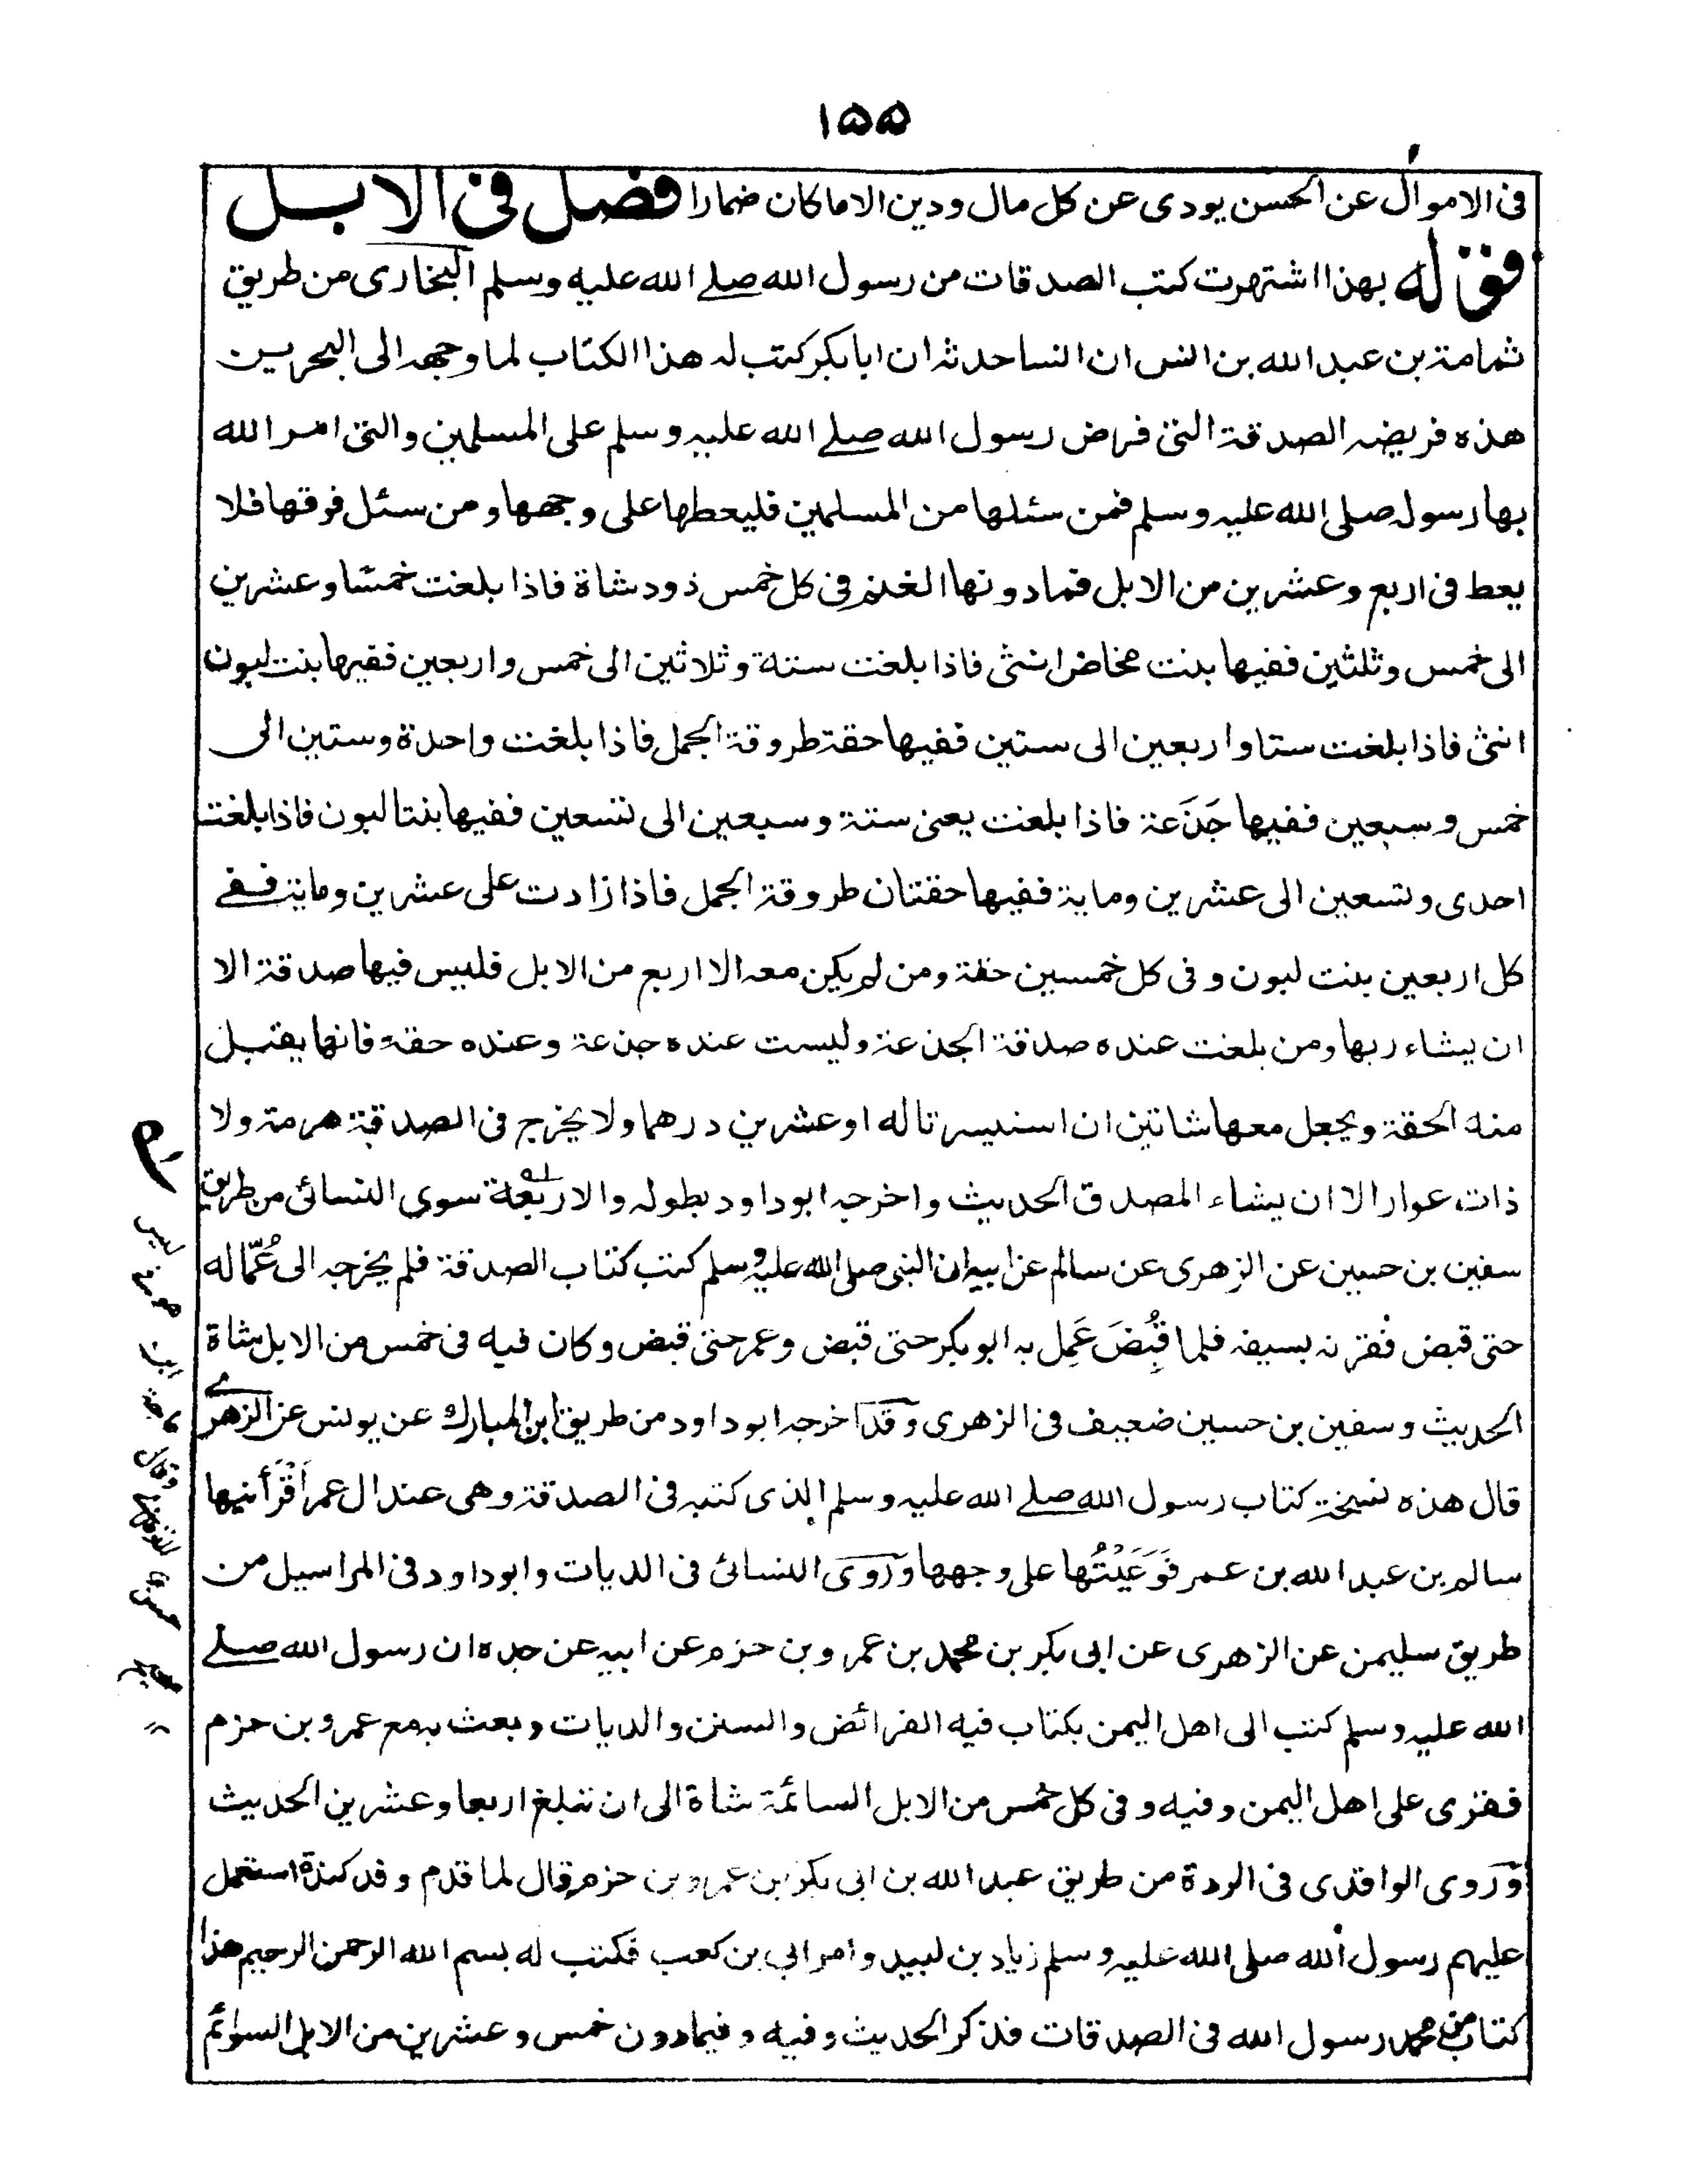 ١٥٥
فى الاموال عن الحسن يودى عن كل مال ودين الا ماكان ضمارا فصل فى الابل
قوله بهذا اشتهرت كتب الصدقات من رسول الله صلے الله عليه وسلم البخارى من طريق
ثمامة بن عبد الله بن انس ان انسا حدثه ان ابابكر كتب له هذا الكتاب لما وجهه الى البحرين
هذه فريضه الصدقة التى فرض رسول الله صلے الله عليه وسلم على المسلمين والتى امر الله
بها رسوله صلى الله عليه وسلم فمن سئلها من المسلمين فليعطها على وجهها ومن سئل فوقها فلا
يعط فى اربع وعشرين من الابل فمادونها الغنم فى كل خمس ذود شاة فاذا بلغت خمسا وعشرين
الى خمس وثلثين ففيها بنت مخاض انثى فاذا بلغت ستة وثلاثين الى خمس واربعين ففيها بنت لبون
انثى فاذا بلغت ستا واربعين الى ستين ففيها حقة طروقة الجمل فاذا بلغت واحدة وستين الى
خمس وسبعين ففيها جَذَعة فاذا بلغت يعنى ستة وسبعين الى تسعين ففيها بنتا لبون فاذا بلغت
احدى وتسعين الى عشرين وماية ففيها حقتان طروقة الجمل فاذا زادت على عشرين وماية ففے
كل اربعين بنت لبون وفى كل خمسين حقة ومن لم يكن معه الا اربع من الابل فليس فيها صدقة الا
ان يشاء ربها ومن بلغت عنده صدقة الجذعة وليست عنده جذعة وعنده حقة فانها يقبل
منه الحقة ويجعل معها شاتين ان استيسرتا له او عشرين درهما ولا يخرج فى الصدقة هرمة ولا
ذات عوار الا ان يشاء المصدق الحديث واخرجه ابوداود بطوله والاربعة سوى النسائى من طريق
سفين بن حسين عن الزهرى عن سالم عن ابيه ان النبى صلى الله عليه وسلم كتب كتاب الصدقة فلم يخرجه الى عُمّاله
حتى قبض فقرنه بسيفه فلما قُبِضَ عَمِل به ابوبكر حتى قبض وعمر حتى قبض وكان فيه فى خمس من الابل شاة
الحديث وسفين بن حسين ضعيف فى الزهرى وقد اخرجه ابوداود من طريق ابن المبارك عن يونس عن الزهرے
قال هذه نسخة كتاب رسول الله صلے الله عليه وسلم الذى كتبه فى الصدقة وهى عند ال عمر اَقْرَأنيها
سالم بن عبد الله بن عمر فَوَعَيْتُها على وجهها وروى النسائى فى الديات وابوداود فى المراسيل من
طريق سليمن عن الزهرى عن ابى بكر بن محمد بن عمرو بن حزم عن ابيه عن جده ان رسول الله صلے
الله عليه وسلم كتب الى اهل اليمن بكتاب فيه الفرائض والسنن والديات وبعث به مع عمرو بن حزم
فقرى على اهل اليمن وفيه وفى كل خمس من الابل السائمة شاة الى ان تبلغ اربعا وعشرين الحديث
وروى الواقدى فى الردة من طريق عبد الله بن ابى بكر بن عمرو بن حزم قال لما قدم وفد كندة استعمل
عليهم رسول الله صلى الله عليه وسلم زياد بن لبيد وامر ابى بن كعب فكتب له بسم الله الرحمن الرحيم هذا
كتاب من محمد رسول الله فى الصدقات فذكر الحديث وفيه وفيمادون خمس وعشرين من الابل السوائم